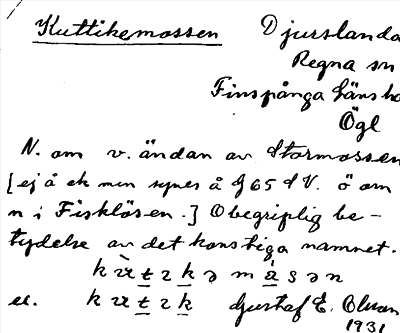 Kuttikemossen Djurslanda
Regna sn
Finspånga länsho
Ögl
N. om v. ändan av Stormossen
[ej å ek men synes å G 65 d V. ö om
n i Fisklösen.] Obegriplig be-
tydelse av det konstiga namnet.
el. Gustaf E. Olsson
1931